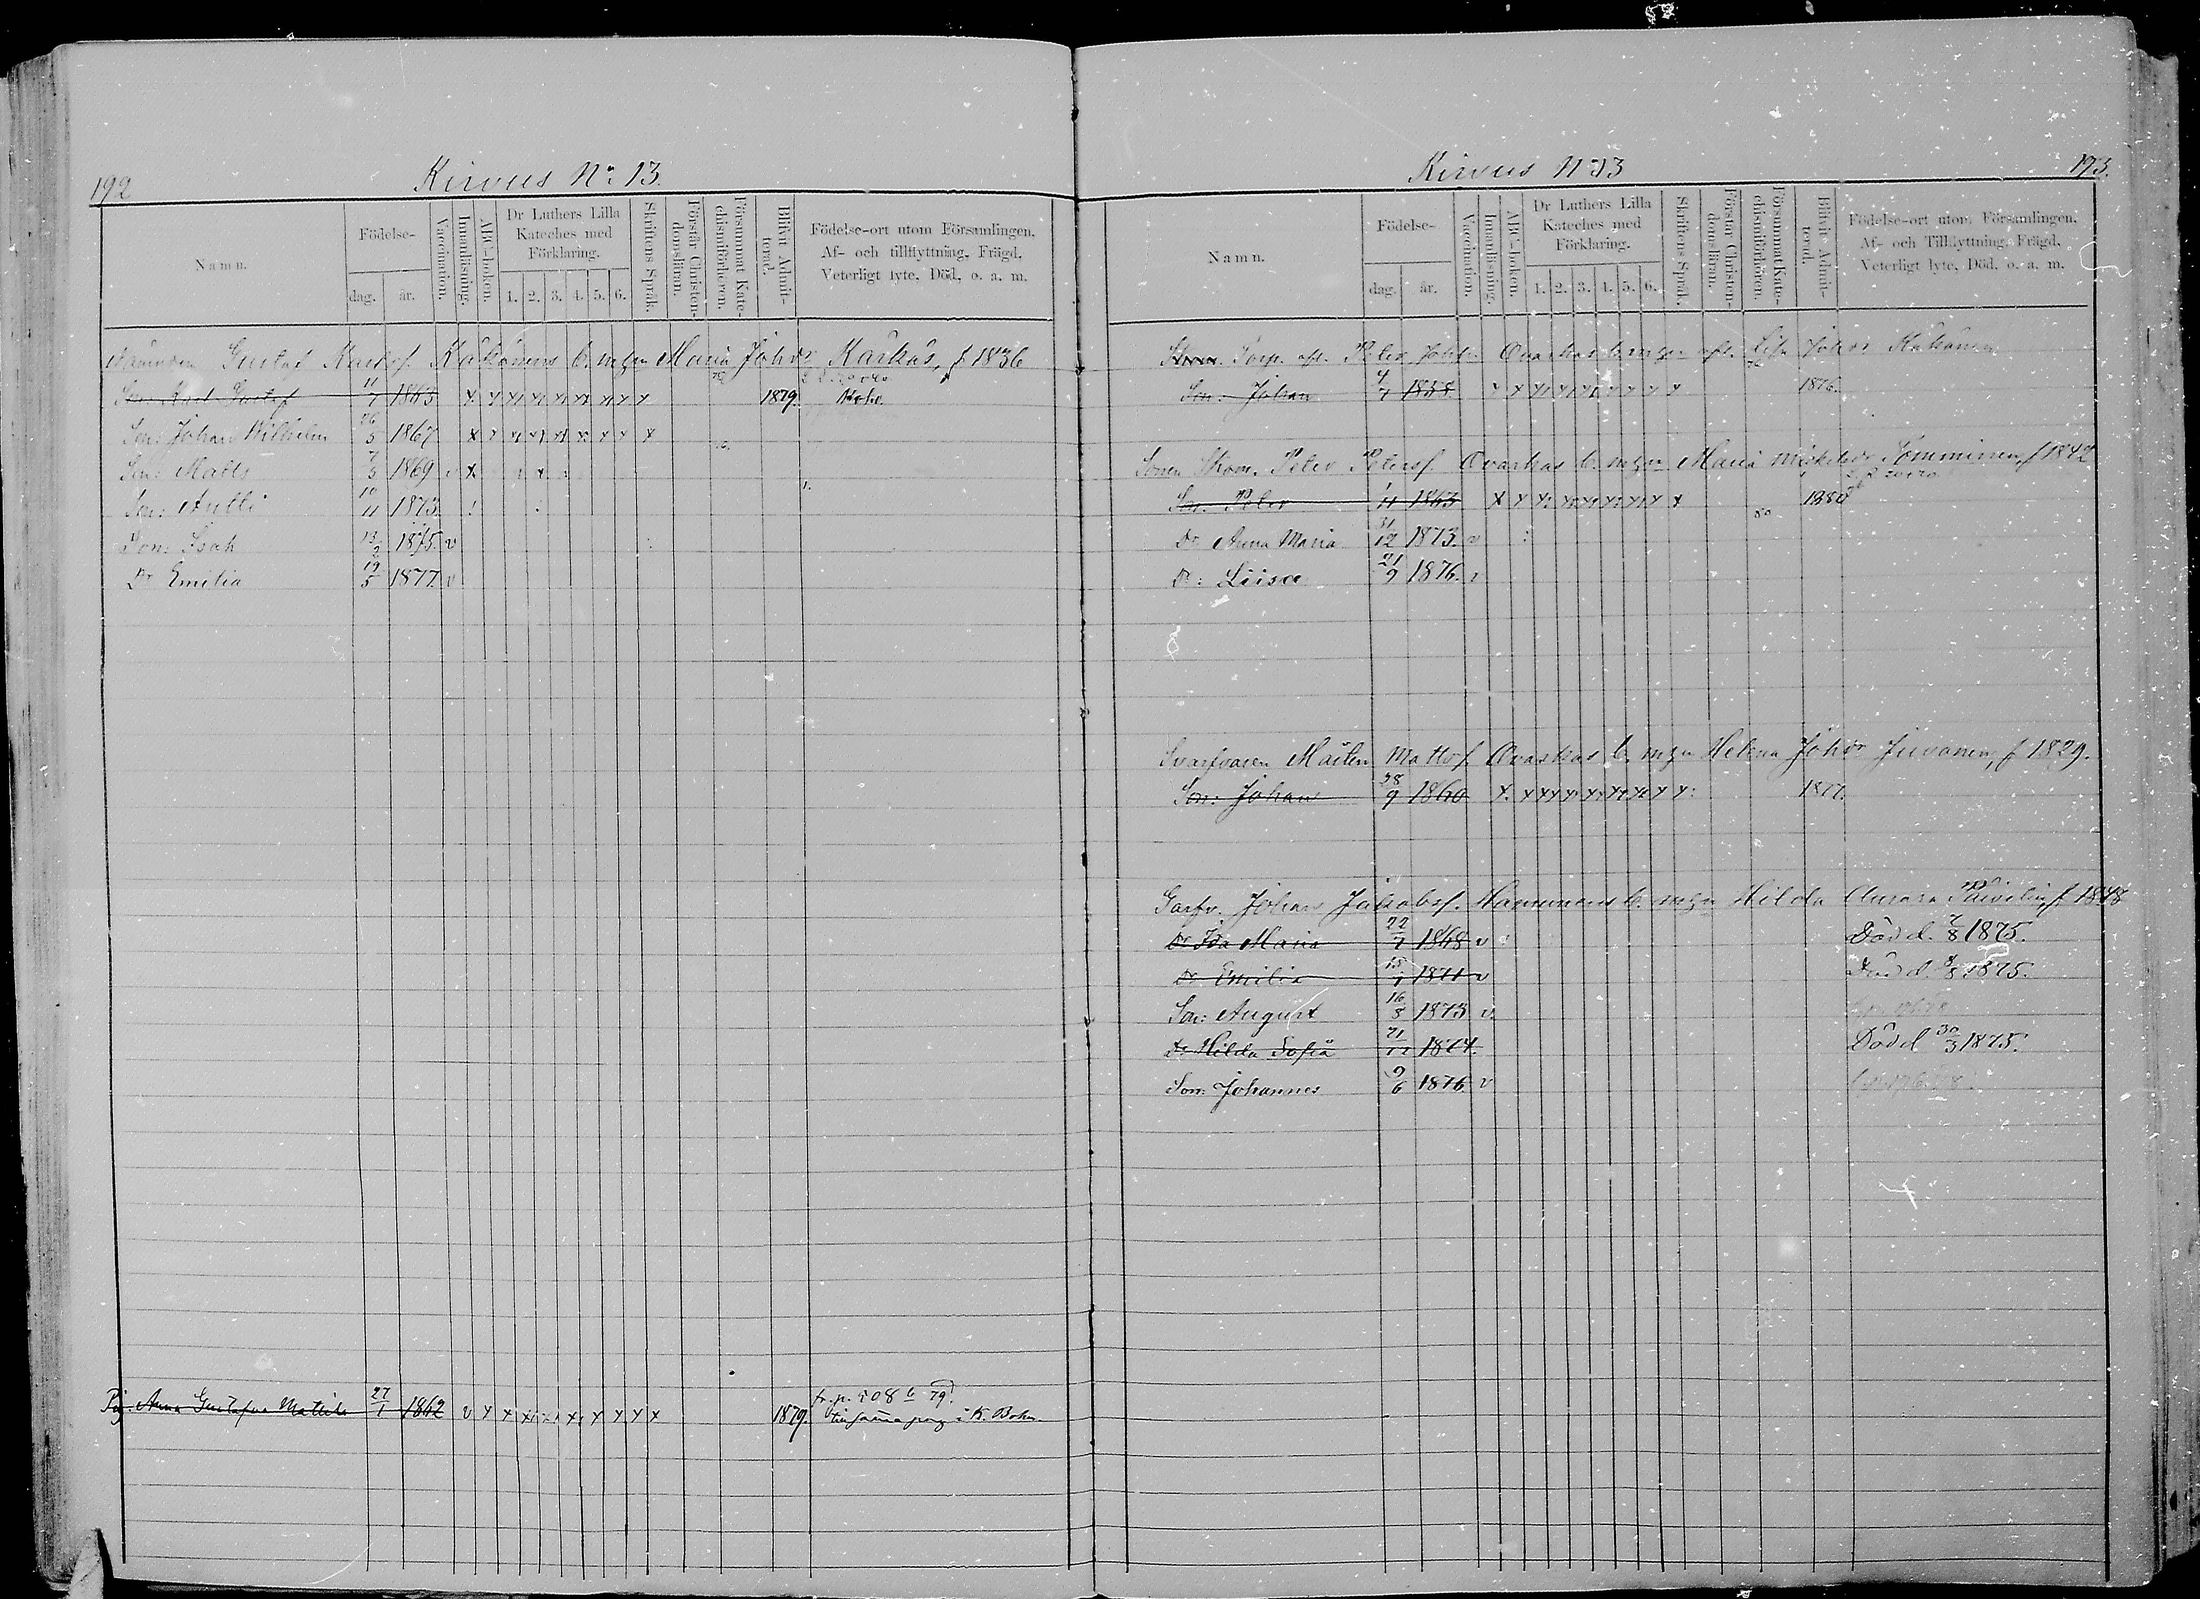 192
Kirvus No 13.
Namn.
Födelse-
dag. år.
Vaccination.
Innanläsning.
ABC-boken.
Dr Luthers Lilla Kateches med Förklaring.
1. 2. 3. 4. 5. 6.
Skriftens Språk.
Förstår Christendomsläran.
Försummat Katechismiförhören.
Blifvit Admitterad.
Födelse-ort utom Församlingen, Af- och tillflyttning, Frägd, Veterligt lyte, Död, o. a. m.
Gustaf Kähönens b. m. hu Maria Johdr Karhus, f 1836
Son: Karl Gustaf 11/7 1863 x x x x x x x x x 1879.
Son: Johan Wilhelm 26/5 1867 x x x x x x x x x
Son: Matts 7/3 1869 v x x
Son: Antti 10/11 1873.
Son: Isak 13/2 1875. v
Dr Emilia 19/5 1877. v
Pig. Anna Gustafva Mattsdr 27/1 1862 v x x x x x x x x x 1879. fr. p. 508 b 79.
193.
Kirvus No 13
Namn.
Födelse-
dag. år.
Vaccination.
Innanläsning.
ABC-boken.
Dr Luthers Lilla Kateches med Förklaring.
1. 2. 3. 4. 5. 6.
Skriftens Språk.
Förstår Christendomsläran.
Försummat Katechismiförhören.
Blifvit Admitterad.
Födelse-ort utom Församlingen, Af- och Tillflyttning, Frägd, Veterligt lyte, Död, o. a. m.
Torp. afl. Peter Johs. Ovaskas b. m. hu afl. Lisa Johdr Kähönen
Son: Johan 4/7 1858 x x x x x x x x x 1876.
Sonen Peter Petersf. Ovaskas b. m. hu Maria Mickelsdr Tomminen, f 1842
Son: Peter 1/11 1863 x x x x x x x x x 1880
Dr Anna Maria 31/12 1873. v
Dr: Liisa 21/9 1876. v
Svarfvaren Mårten Mattsf. Ovaskas b. m. hu Helena Johdr Juvonen, f 1829.
Son: Johan 28/9 1860 x x x x x x x x x 1877.
Garfv. Johan Jakobsf. b. m. hu Hilda Aurora f. 1848
Dr Ida Maria 22/7 1868 v Död d. 7/8 1875.
Dr Emilia 15/1 1871 v Död d. 8/8 1875.
Son: August 16/8 1873 v.
Dr Hilda Sofia 21/12 1874. Död d 30/3 1875.
Son: Johannes 9/6 1876. v